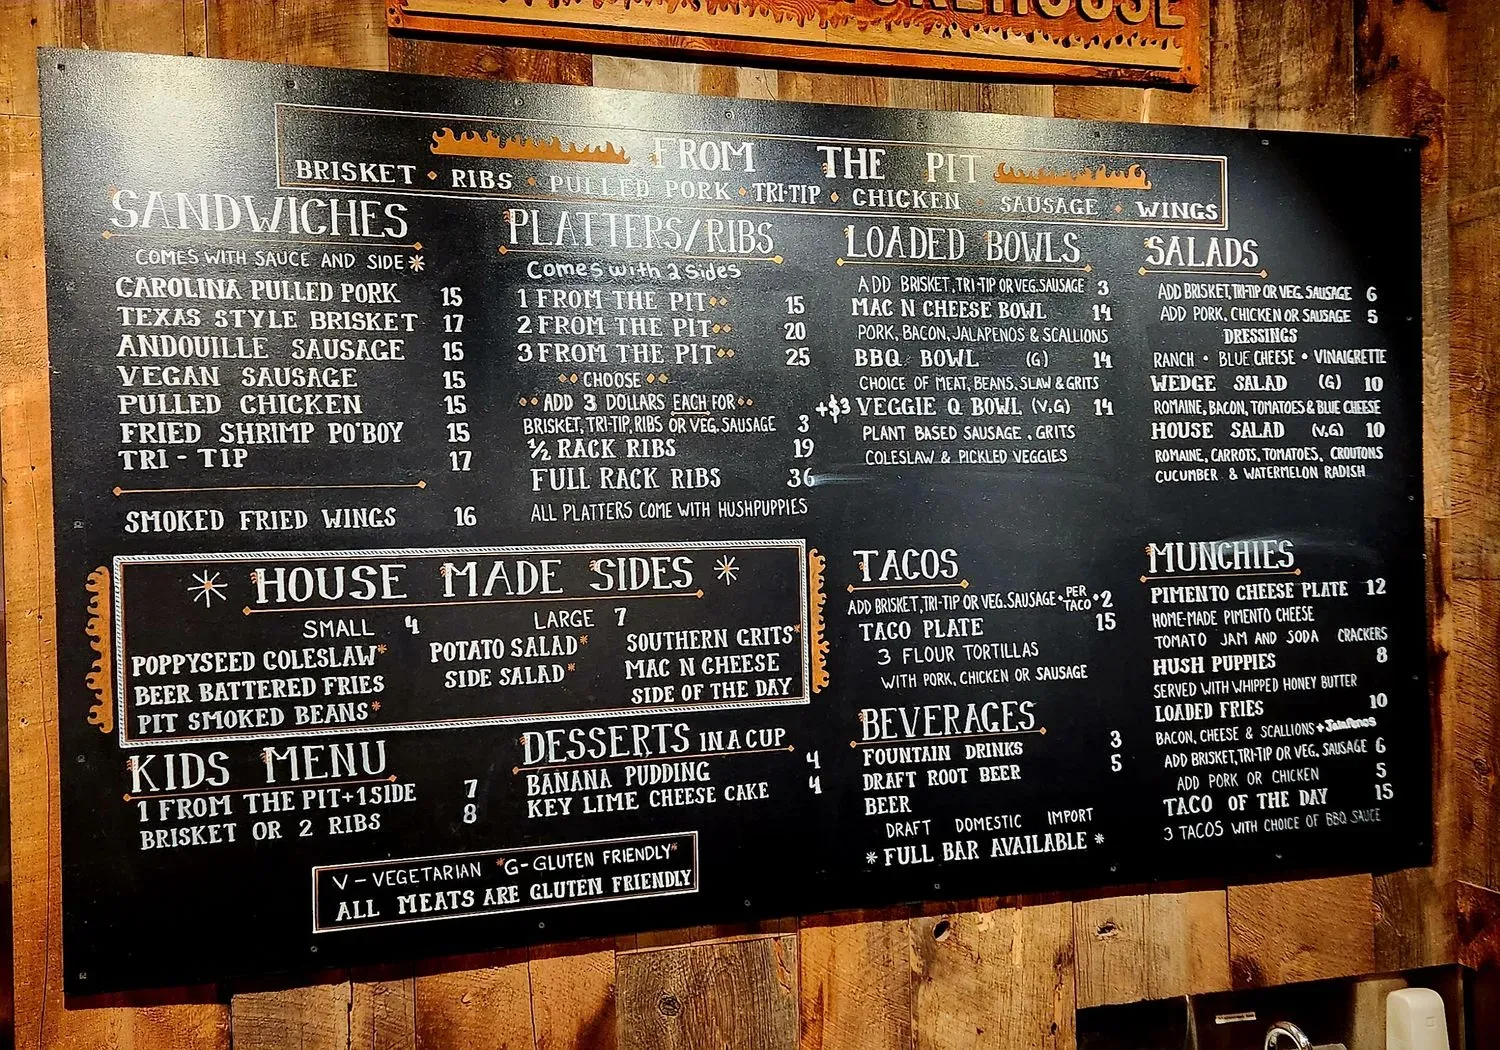 FROM THE PIT
BRISKET • RIBS • PULLED PORK • TRI-TIP • CHICKEN • SAUSAGE • WINGS
SANDWICHES
COMES WITH SAUCE AND SIDE*
CAROLINA PULLED PORK 15
TEXAS STYLE BRISKET 17
ANDOUILLE SAUSAGE 15
VEGAN SAUSAGE 15
PULLED CHICKEN 15
FRIED SHRIMP PO'BOY 15
TRI-TIP 17
SMOKED FRIED WINGS 16
PLATTERS/RIBS
Comes with 2 sides
1 FROM THE PIT 15
2 FROM THE PIT 20
3 FROM THE PIT 25
CHOOSE
ADD 3 DOLLARS EACH FOR
BRISKET, TRI-TIP, RIBS OR VEG. SAUSAGE 3
½ RACK RIBS 19
FULL RACK RIBS 36
ALL PLATTERS COME WITH HUSHPUPPIES
LOADED BOWLS
ADD BRISKET, TRI-TIP OR VEG. SAUSAGE 3
MAC N CHEESE BOWL 14
PORK, BACON, JALAPENOS & SCALLIONS
BBQ BOWL (G) 14
CHOICE OF MEAT, BEANS, SLAW & GRITS
+$3 VEGGIE Q BOWL (V,G) 14
PLANT BASED SAUSAGE, GRITS
COLESLAW & PICKLED VEGGIES
SALADS
ADD BRISKET, TRI-TIP OR VEG. SAUSAGE 6
ADD PORK, CHICKEN OR SAUSAGE 5
DRESSINGS
RANCH • BLUE CHEESE • VINAIGRETTE
WEDGE SALAD (G) 10
ROMAINE, BACON, TOMATOES & BLUE CHEESE
HOUSE SALAD (V,G) 10
ROMAINE, CARROTS, TOMATOES, CROUTONS
CUCUMBER & WATERMELON RADISH
HOUSE MADE SIDES
SMALL 4 LARGE 7
POPPYSEED COLESLAW*
BEER BATTERED FRIES
PIT SMOKED BEANS*
POTATO SALAD*
SIDE SALAD*
SOUTHERN GRITS*
MAC N CHEESE
SIDE OF THE DAY
TACOS
ADD BRISKET, TRI-TIP OR VEG. SAUSAGE • PER TACO • 2
TACO PLATE 15
3 FLOUR TORTILLAS
WITH PORK, CHICKEN OR SAUSAGE
MUNCHIES
PIMENTO CHEESE PLATE 12
HOME-MADE PIMENTO CHEESE
TOMATO JAM AND SODA CRACKERS
HUSH PUPPIES 8
SERVED WITH WHIPPED HONEY BUTTER
LOADED FRIES 10
BACON, CHEESE & SCALLIONS + Jalapenos
ADD BRISKET, TRI-TIP OR VEG. SAUSAGE 6
ADD PORK OR CHICKEN 5
TACO OF THE DAY 15
3 TACOS WITH CHOICE OF BBQ SAUCE
KIDS MENU
1 FROM THE PIT+1 SIDE 7
BRISKET OR 2 RIBS 8
DESSERTS IN A CUP
BANANA PUDDING 4
KEY LIME CHEESE CAKE 4
BEVERAGES
FOUNTAIN DRINKS 3
DRAFT ROOT BEER 5
BEER
DRAFT DOMESTIC IMPORT
*FULL BAR AVAILABLE*
V-VEGETARIAN *G-GLUTEN FRIENDLY*
ALL MEATS ARE GLUTEN FRIENDLY